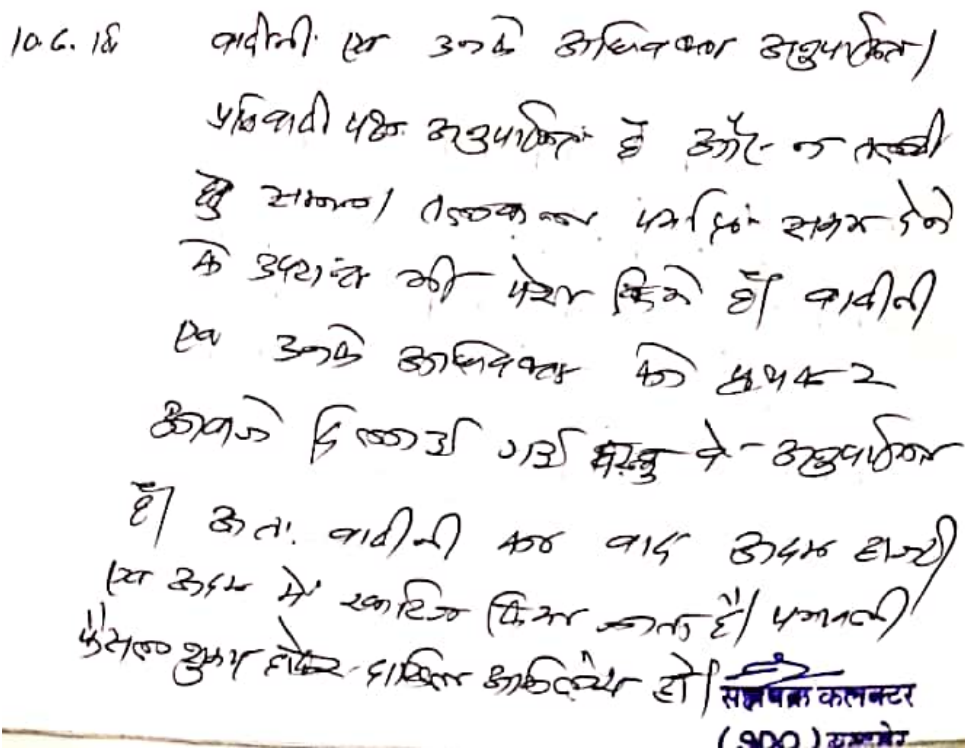 10.6.18 वादीनी एव उनके अधिवक्ता अनुपस्थित।
प्रतिवादी पक्ष अनुपस्थित है और न तलबी
हेतु सामान। तलबाना पर्याप्त समय देने
के उपरांत भी पेश किये हैं। वादीनी
एव उनके अधिवक्ता को पृथक २
आवाजे दिलाई गई परन्तु वे अनुपस्थित
है। अतः वादीनी का वाद अदम हाजरी
एव अदम में खारिज किया जाता है। पत्रावली
फैसल शुमार होकर दाखिल अभिलेख हो।
सहायक कलक्टर
(SDO)